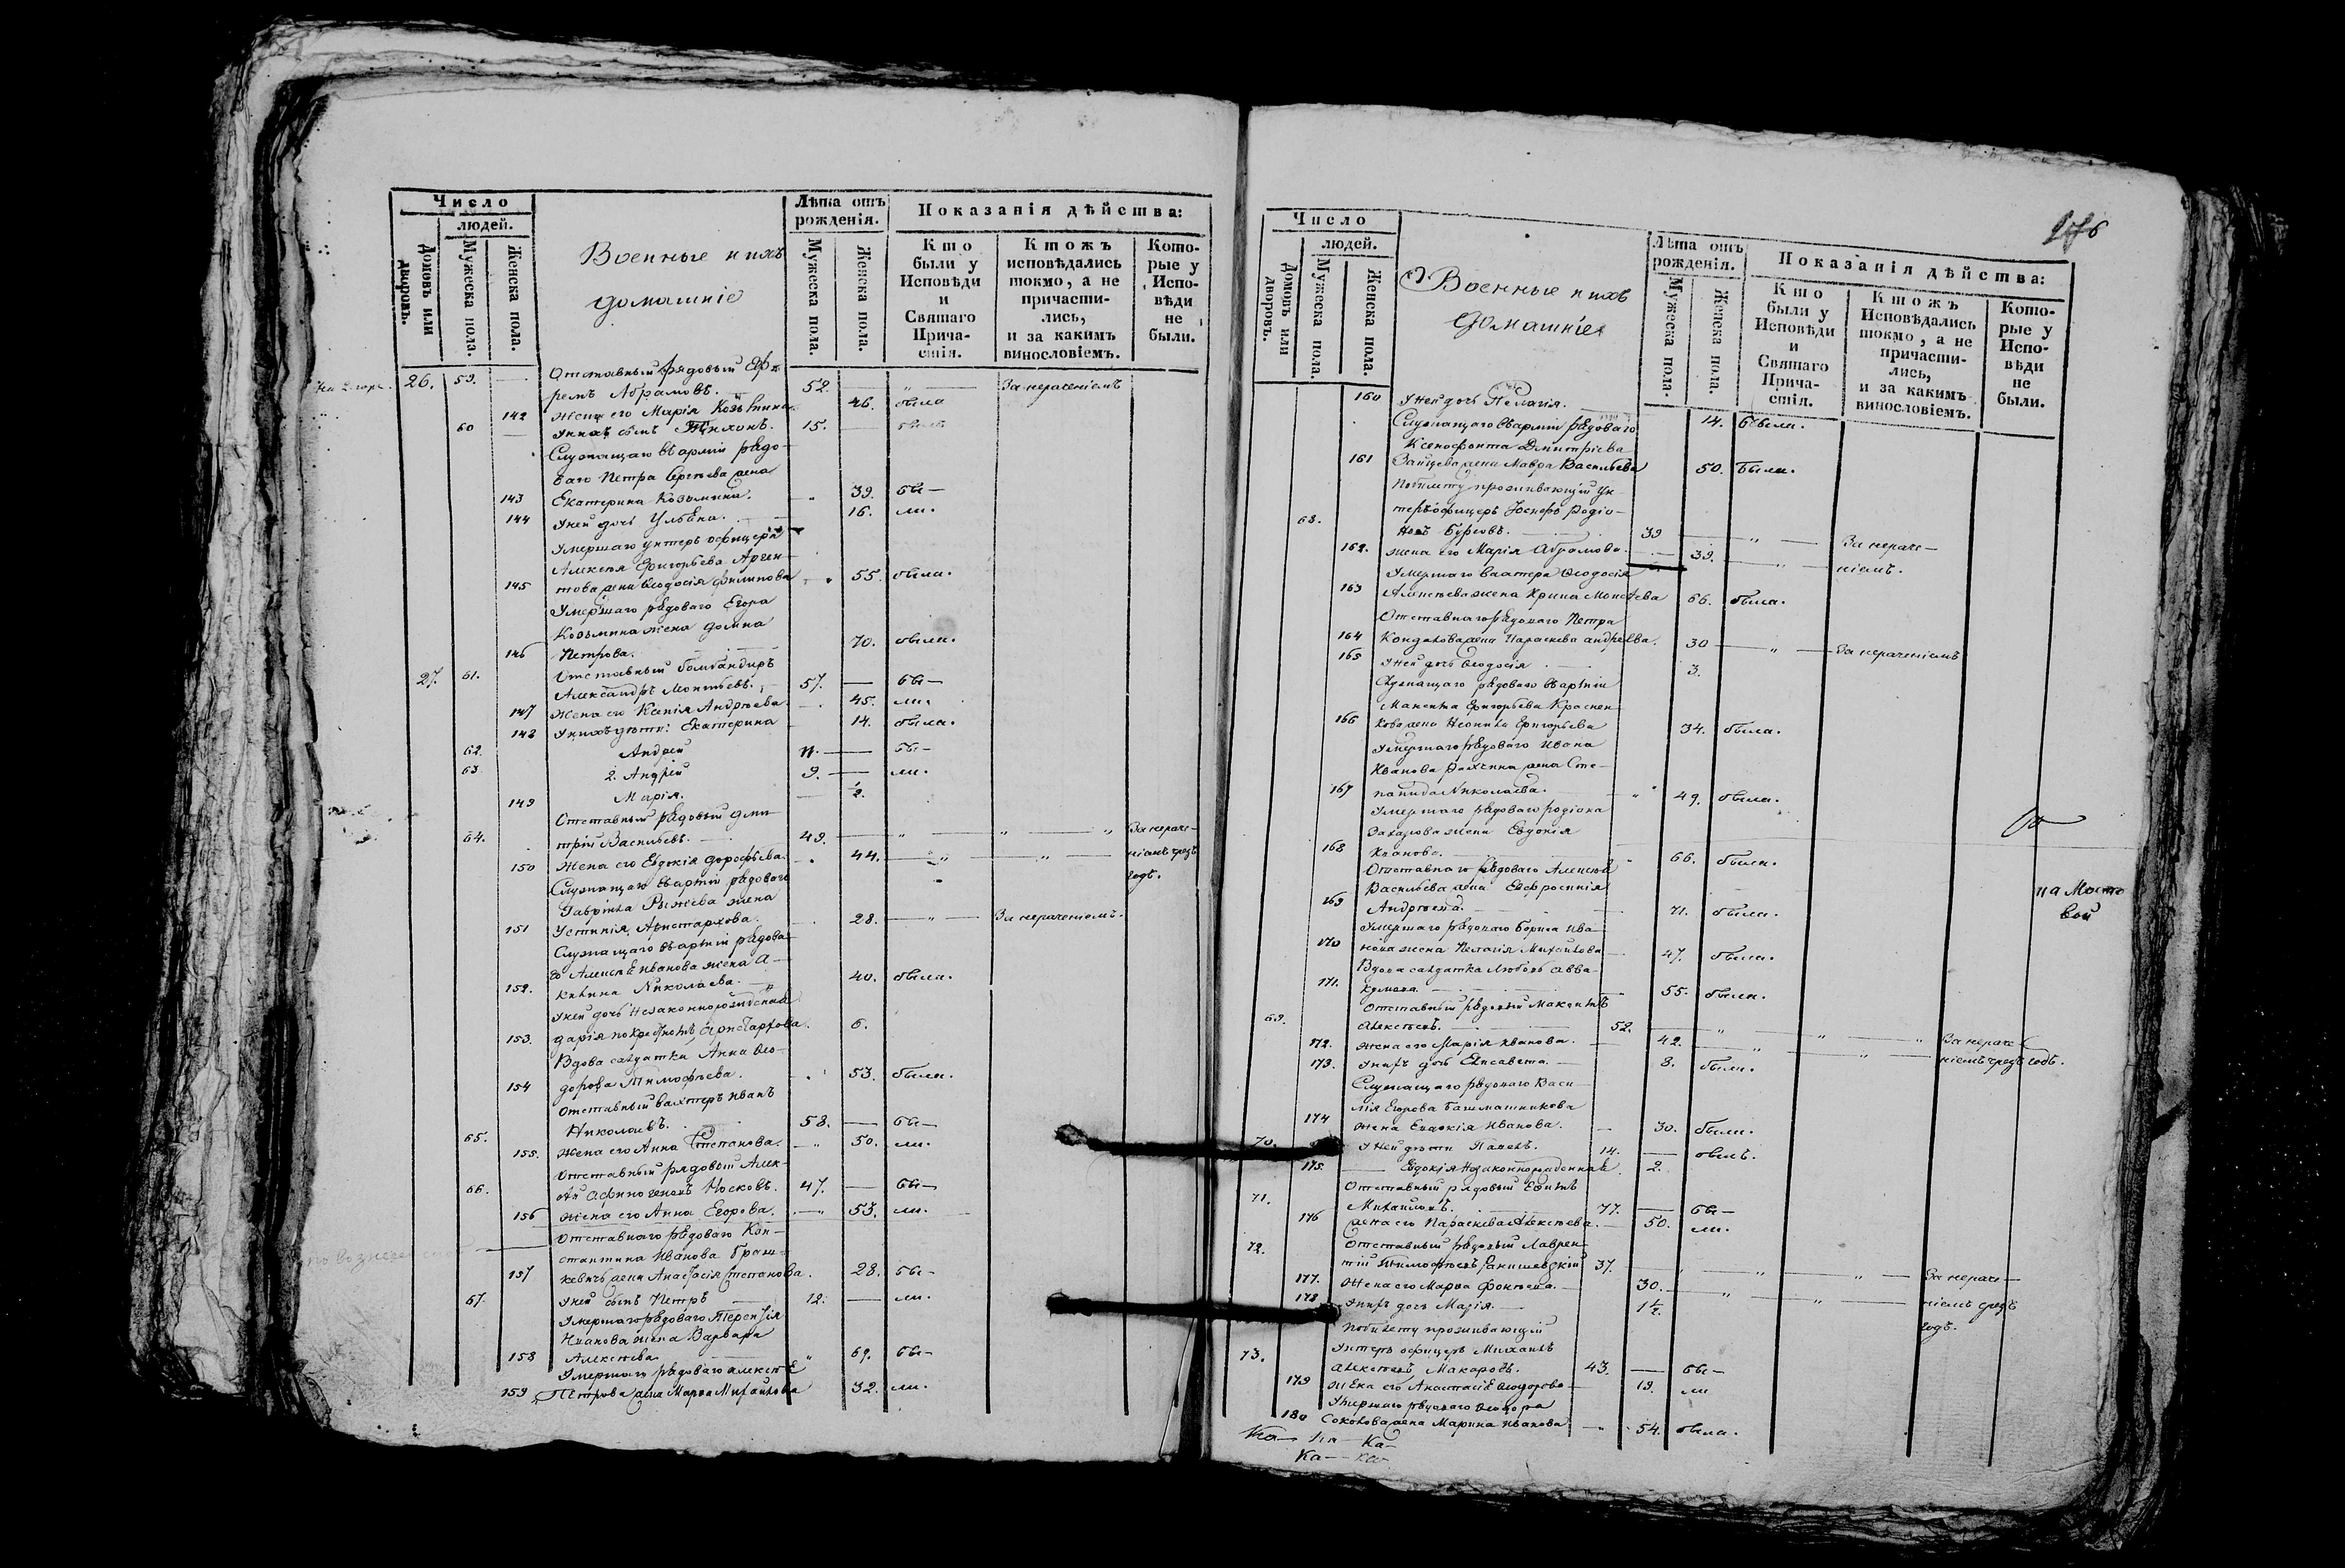 Число
людей.
Домовъ или дворовъ.
Мужеска пола.
Женска пола.
Военные и ихъ
домашніе
Лѣта отъ
рожденія.
Мужеска пола.
Женска пола.
Показанія дѣйства:
Кто
были у
Исповѣди
и
Святаго
Прича-
стія.
Ктожъ
исповѣдались
токмо, а не
причасти-
лись,
и за какимъ
винословіемъ.
Кото-
рые у
Испо-
вѣди
не
были.
26. 59. Отставный рядовый Еф-
ремъ Абрамовъ. 52. За нераченіемъ
142 Жена его Марія Козьмина 46. была
60 У нихъ сынъ Тихонъ. 15.
Служащаго въ арміи рядо-
ваго Петра Сергѣева жена
143 Екатерина Козьмина. 39. бы-
144 У ней дочь Ульяна. 16. ли.
Умершаго унтеръ офицера
Алексѣя Григорьева Арген-
145 това жена Ѳеодосія Филипова 55. была.
Умершаго рядоваго Егора
Козьмина жена Домна
146 Петрова. 70. была.
27. 61. Отставный бомбандиръ
Александръ Монтьевъ. 57. бы-
147 Жена его Ксенія Андреева 45. ли.
148 У нихъ дѣти: Екатерина 14. была.
62. Андрей 11. бы-
63 2. Андрей 9. ли.
149 Марія. 1/2.
Отставный рядовый Дми-
64. трій Васильевъ. 49. За нераче-
150 Жена его Евдокія Дорофѣева. 44. ніемъ чрезъ
Служащаго въ арміи рядоваго годъ.
Гавріила Рыжева жена
151 Устинія Аристархова. 28. За нераченіемъ.
Служащаго въ арміи рядова-
го Алексѣя Иванова жена А-
152. Николаева. 40. была.
У ней дочь незаконнорожденная
153. Дарія по крестномъ Аристархова. 6.
Вдова салдатка Анна Ѳео-
154 дорова Тимофѣева. 53. была.
Отставный вахтеръ Иванъ
65. Николаевъ. 58. бы-
155. Жена его Анна Степанова. 50. ли.
Отставный рядовый Алек-
66. ѣй Афиногеновъ Носковъ. 47. бы-
156 Жена его Анна Егорова. 53. ли.
Отставнаго рядоваго Кон-
стантина Иванова Граш-
157 кевичь жена Анастасія Степанова. 28. бы-
67. У ней сынъ Петръ 12. ли.
Умершаго рядоваго Терентія
Иванова жена Варвара
158 Алексѣева 69. бы-
Умершаго рядоваго Алексѣя
159 Петрова жена Марѳа Михайлова 32. ли.
Число
людей.
Домовъ или дворовъ.
Мужеска пола.
Женска пола.
Военные и ихъ
домашніе
Лѣта отъ
рожденія.
Мужеска пола.
Женска пола.
Показанія дѣйства:
Кто
были у
Исповѣди
и
Святаго
Прича-
стія.
Ктожъ
Исповѣдались
токмо, а не
причасти-
лись,
и за какимъ
винословіемъ.
Кото-
рые у
Испо-
вѣди
не
были.
160 У ней дочь Пелагія. 14. была.
Служащаго въ арміи рядоваго
Ксенофонта Димитріева
161 Зайцева жена Мавра Васильева 50. была.
По билету проживающій ун-
теръ офицеръ Іосифъ Родіо-
68. новъ Бурковъ. 39 За нераче-
162. жена его Марія Абрамова. 39. ніемъ.
Умершаго вахтера Ѳеодосія
163 Алексѣева жена Ирина Моисѣева 66. была.
Отставнаго рядоваго Петра
164 Кондакова жена Параскева Андреева. 30 За нераченіемъ
165 У ней дочь Ѳеодосія 3.
Служащаго рядоваго въ арміи
Григорьева Краснен-
166 кова жена Неонила Григорьева 34. была.
Умершаго рядоваго Ивана
Иванова жена Сте-
167 панида Николаева. 49. была.
Умершаго рядоваго Родіона
Захарова жена Евдокія
168 Иванова. 66. была.
Отставнаго рядоваго Алексѣя
Васильева жена Евфросинія
169 Андреева. 71. была.
Умершаго рядоваго Бориса Ива-
170 нова жена Пелагія Михайлова 47. была.
Вдова салдатка Любовь Авва-
171. кумова. 55. была.
Отставный рядовый Максимъ
69. Алексѣевъ. 52.
172. жена его Марія Иванова. 42. За нераче-
173. У нихъ дочь Елисавета. 8. была. ніемъ чрезъ годъ.
Служащаго рядоваго Васи-
лія Егорова Башмашникова
174 жена Евдокія Иванова. 30. была.
70. У ней дѣти Павелъ. 14. былъ.
175. Евдокія незаконнорожденная. 2.
Отставный рядовый Ефимъ
71. Михайловъ. 77. бы-
176 жена его Параскева Алексѣева. 50. ли.
Отставный рядовый Лаврен-
72. тій Тимофѣевъ 37.
177. Жена его Марѳа Фокѣева. 30. За нераче-
178 У нихъ дочь Марія. 1 1/2. ніемъ чрезъ
По билету проживающій годъ.
Унтеръ офицеръ Михаилъ
73. Алексѣевъ Макаровъ. 43. бы-
179 Жена его Анастасія Ѳеодорова 19. ли
Умершаго рядоваго Ѳеодора
180 Соколова жена Марина Иванова 54. была.
на Мосто
вой
Ка- Ка-
Ка-